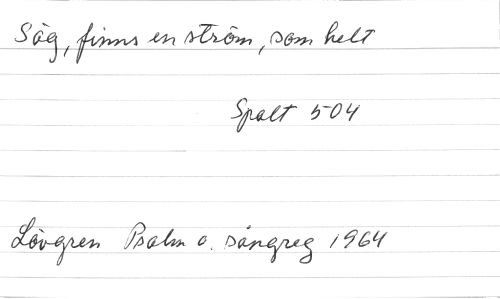 Säg, finns en ström, som helt
Spalt 504
Lövgren Psalm o. sångreg 1964